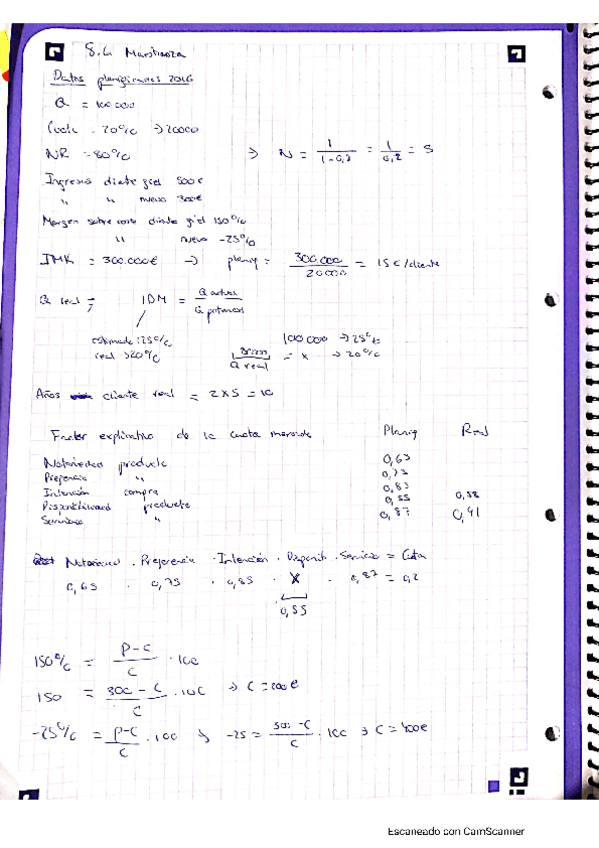 Datos planificados 2016
Q = 100.000
Cuota = 20% → 20000
NR = 80% ⇒ N = 1 / 1-0,8 = 1 / 0,2 = 5
Ingresos cliente fiel 500€
" " nuevo 300€
Margen sobre coste cliente fiel 150%
" nuevo -25%
IMK = 300.000€ → planif = 300.000 / 20000 = 15€/cliente
Q real → IDM = Q actual / Q potencial
estimado: 25%
real → 20%
100.000 → 25%
= x → 20%
Q real
Años cliente real = 2x5 = 10
Factor explicativo de la cuota mercado Planif Real
producto 0,63
Preferencia "
Intención compra
Disponibilidad producto 0,55 0,58
Servicio " 0,87 0,91
Notoriedad . Preferencia . Intención . Disponib . Servicio = Cuota
0,65 . 0,75 . 0,85 . X . 0,87 = 0,2
0,55
150% = P-C / C . 100
150 = 300-C / C . 100 ⇒ C = 200€
-25% = P-C / C . 100 ⇒ -25 = 300-C / C . 100 ⇒ C = 400€
Escaneado con CamScanner